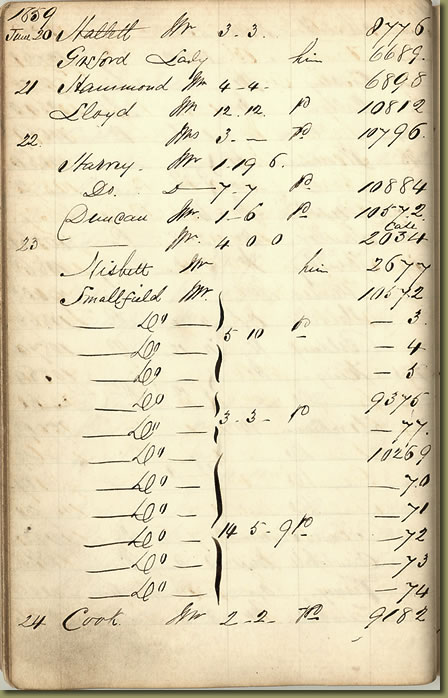 1859
June 20 Hallett Mr 3-3. 8776
Gosford Lady him 6689.
21 Hammond Mr 4-4. 6898
Lloyd Mr 12.12. Pd 10812
22 Mrs 3. - Pd 10796.
Harvey. Mr 1-19 6.
Do. D— 7-7 Pd 10884
Duncan Mr. 1-6 Pd 10572.
Case
23 —— Mr. 4 0 0 2034
Nisbett Mr him 2677
Smallfield Mr. 10572
—— Do — — 3.
—— Do — 5 10 Pd — 4
—— Do — — 5
—— Do — 9375
—— Do — 3-3- Pd — 77.
—— Do — 10269
—— Do — — 70
—— Do — — 71
—— Do — 14 5-9 Pd — 72
—— Do — — 73
—— Do — — 74
24 Cook. Mr 2-2- Pd 9182